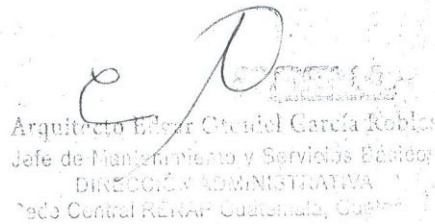 Arquitecto Edgar García Robles
Jefe de Mantenimiento y Servicios Básicos
DIRECCIÓN ADMINISTRATIVA
Sede Central RENAP Guatemala,